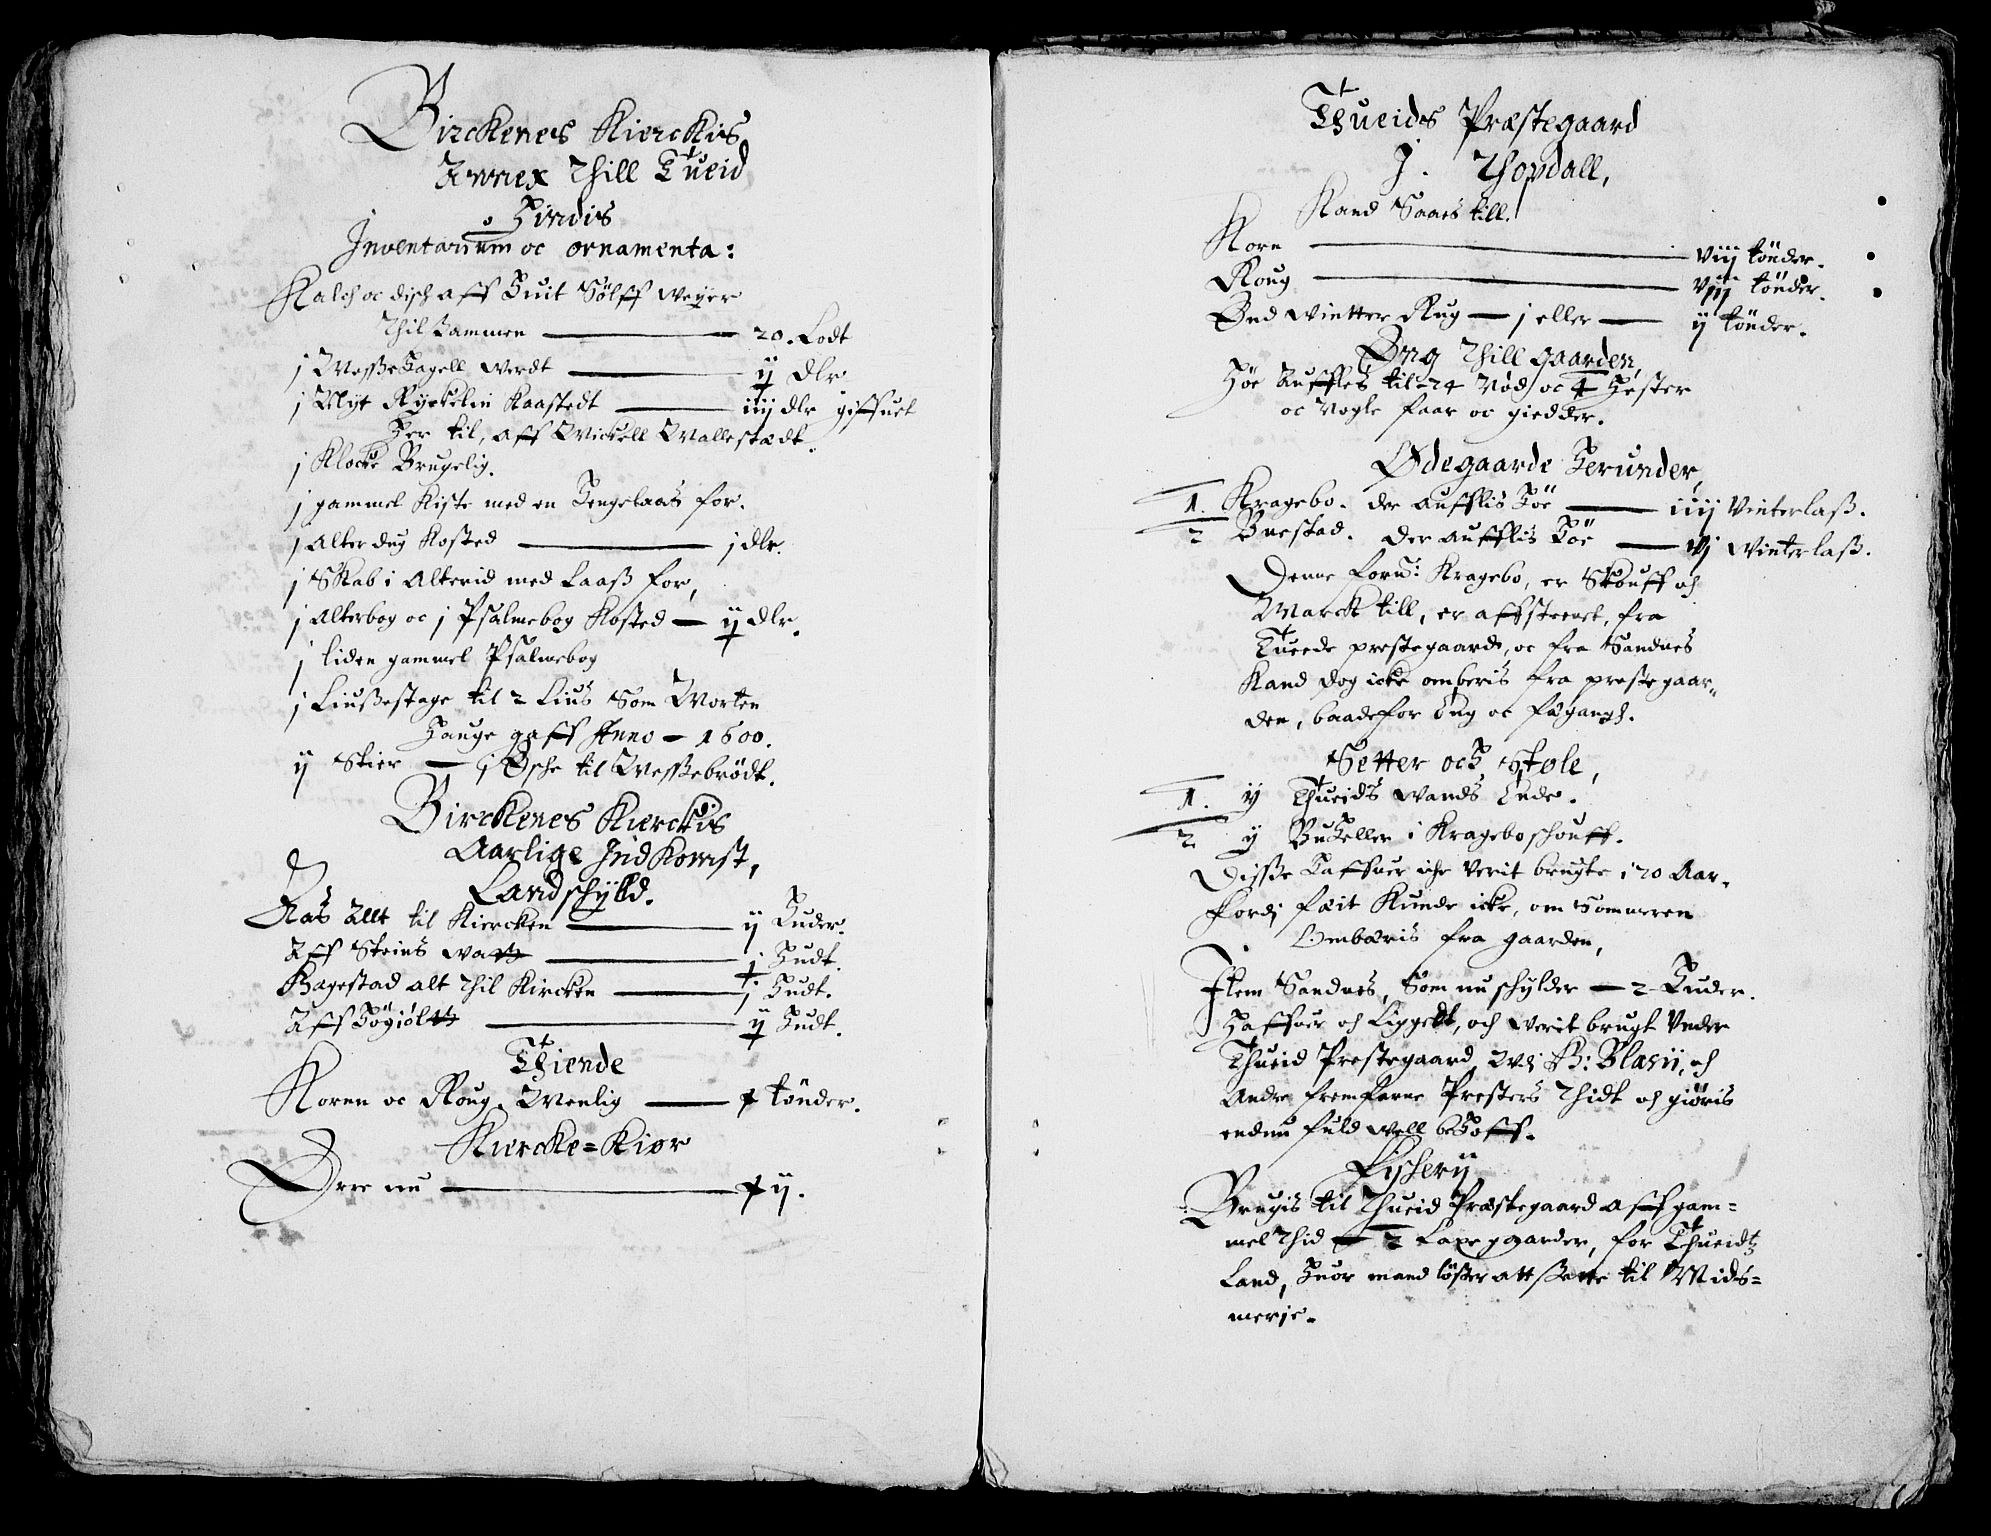 Birckenes Kierckis
Annex Thill Tueid
Hindis
Inventarium oc ornamenta:
Kalch oc disch aff Huit Sølff weyer
Thilsammen — 20. Lodt
j Messehagell werdt — ij dlr
j Nyt Ryckelin Kaastedt — iiij dlr giffuet
Her til, aff Mickell Wallestædt.
j Klocke Brugelig.
j gammel Kiste med en Hengelaas for.
j Alterdug Kosted — j dlr.
j Skab i Alterid med Laaß for,
j Alterbog oc j Psalmebog Kosted — ij dlr.
j liden gammel Psalmebog
j Liußestage til 2 Lius Som Morten
Hauge gaff Anno — 1600.
ij Skier — j Øsche til Messebrødt.
Birckenes Kierckis
Aarlige Indkomst,
Landschyld.
Aas Allt til Kiercken — ij Huder.
Aff Steins — j Hudt.
Bagestad alt Thil Kircken — j Hudt.
Aff — ij Hudt.
Thiende
Kornn oc Roug. Wenlig — tønder.
Kiercke=Kiør
Erre nu — ij.
Thueids Præstegaard
J. Thopdall,
Kand Saaes till.
Korn — viij tønder.
Roug — tønder.
End Wintter Rug — j eller — ij tønder.
Eng Thill gaarden,
Høe Auffles til 24 Nød oc 4 Hester
oc Nogle faar oc giedder.
Ødegaarde Herunder,
1. Kragebo. der aufflis Höe — iiij Vinterlaß.
2 Buestad. der aufflis Höe — vj Winterlaß.
Denne forn: Kragebo, er Skouff och
Marck till, er, fra
Tueede prestegaard, oc fra Sandnes
Kand dog icke omberis fra prestegaar=
den, baade for Eng oc fægangh.
Setter och Støle,
1. ij Thueids Wands Ende.
2 ij i Krageboschouff.
Disse Haffuer iche Verit brugte i 20 Aar.
Fordj fæit Kunde icke, om Sommeren
Ombæris fra gaarden,
Item Sandnes, Som nu schylder — 2 Huder.
Haffuer och Liggedt, och Werit brugt Vnder
Thueid Prestegaard, Udj H: Blasij, och
Andre fremfarne Presters Thidt och giøris
endnu fuld well behoff.
Fischerij
Brugis til Thueid Præstegaard aff gam=
mel Thid — 2 Laxe gaarder, for Thueidtz
Land, Huor mand løster att Sette til Mids=
merje.